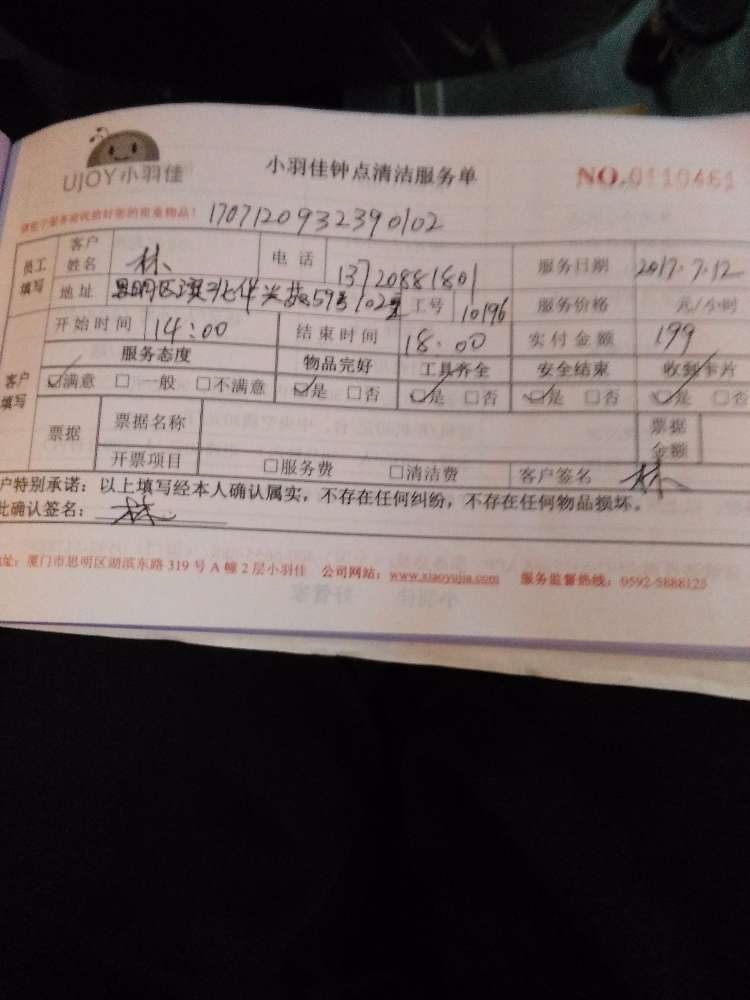 UJOY小羽佳 小羽佳钟点清洁服务单 NO.0110461
1707120932390102
员工填写 客户姓名 林 电话 13720881801 服务日期 2017.7.12
地址 思明区 59号102 工号 10196 服务价格 元/小时
客户填写 开始时间 14:00 结束时间 18:00 实付金额 199
服务态度 物品完好 工具齐全 安全结束 收到卡片
☑满意 □一般 □不满意 ☑是 □否 ☑是 □否 ☑是 □否 ☑是 □否
票据 票据名称 票据金额
开票项目 □服务费 □清洁费 客户签名 林
户特别承诺：以上填写经本人确认属实，不存在任何纠纷，不存在任何物品损坏。
此确认签名： 林
址：厦门市思明区湖滨东路319号A幢2层小羽佳 公司网站：www.xiaoyujia.com 服务监督热线：0592-5888125